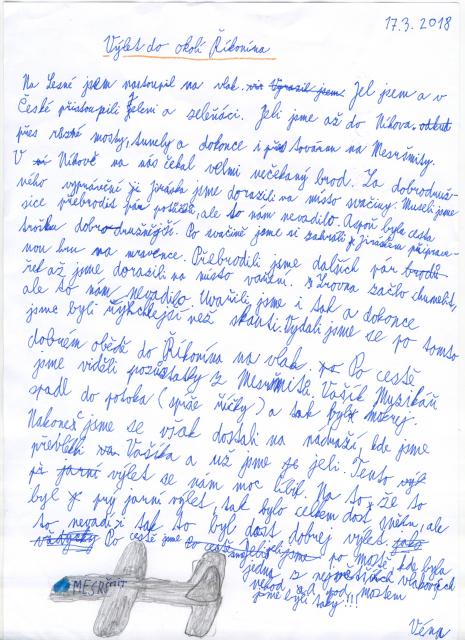 17.3. 2018
Výlet do okolí Říkonína
Na Lesné jsem nastoupil na vlak. Jel jsem a v
České přistoupili Želeni a zeleňáci. Jeli jsme až do Níkova.
přes různé mosty, tunely a dokonce i továrnu na Mesršmity.
V Níkově na nás čekal velmi nečekaný brod. Za dobrodruž-
ného vyprávění jsme dorazili na místo svačiny. Museli jsme
sice přebrodit pár potůčků, ale to nám nevadilo. Aspoň byla cesta
trošku dobrodružnější. Po svačině jsme si zahráli s Jiráskem připrave-
nou hru na mravence. Přebrodili jsme dalších par brodů
než jsme dorazili na místo vaření. Zrovna začlo chumelit,
ale to nám nevadilo. Uvařili jsme i tak a dokonce
jsme byli rychlejší než skauti. Vydali jsme se po tomto
dobrém obědě do Říkonína na vlak. Po cestě
jsme viděli pozůstatky z Mesršmitů. Vašík Muzikář
spadl do potoka (spíše říčky) a tak byl mokrej.
Nakonec jsme se však dostali na nádraží, kde jsme
převlékli Vašíka a už jsme jeli. Tento
výlet se nám moc líbil. Na to, že to
byl prý jarní výlet, tak bylo celkem dost sněhu, ale
to nevadí i tak to byl dost dobrej výlet.
Po cestě jsme po mostě, kde byla
jedna z největších vlakových
nehod a pod mostem
jsme byli taky!!!
MESRŠMIT
Véna